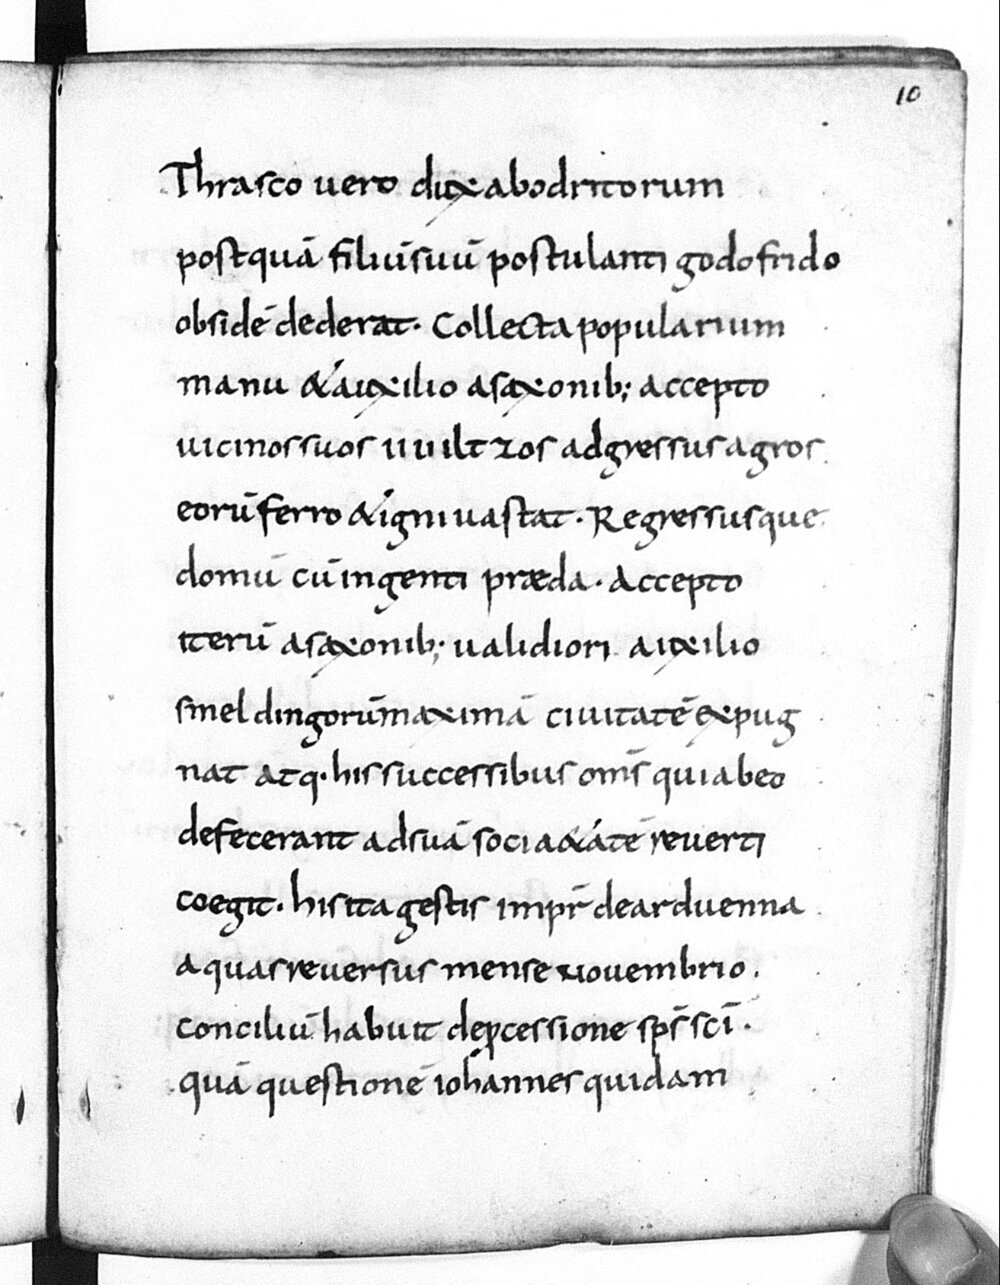 10
Thrasco uero dux abodritorum
postquā filiū suū postulanti godofrido
obsidē dederat. Collecta popularium
manu & auxilio a saxonib; accepto
uicinos suos uuiltzos adgressus agros
eorū ferro & igni uastat. Regressusque
domū cū ingenti præda. Accepto
iterū a saxonib; ualidiori auxilio
smeldingorū maximā ciuitatē expug
nat atq. his successibus om̄s qui ab eo
defecerant ad suā sociaetatē reuerti
coegit. his ita gestis impr̄ de arduenna
aquas reuersus mense nouembrio.
conciliū habuit de ꝓcessione sps̄ sc̄i.
quā questionē iohannes quidam